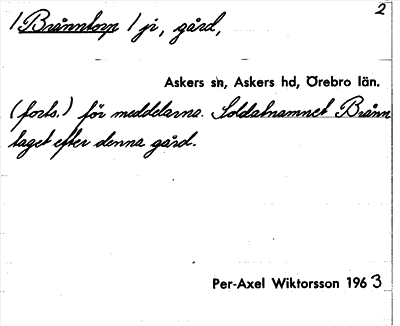 2
/Brånntorp/ jr, gård,
Askers sn, Askers hd, Örebro län.
(forts.) för meddelarna. Soldatnamnet Brånn
taget efter denna gård.
Per-Axel Wiktorsson 1963